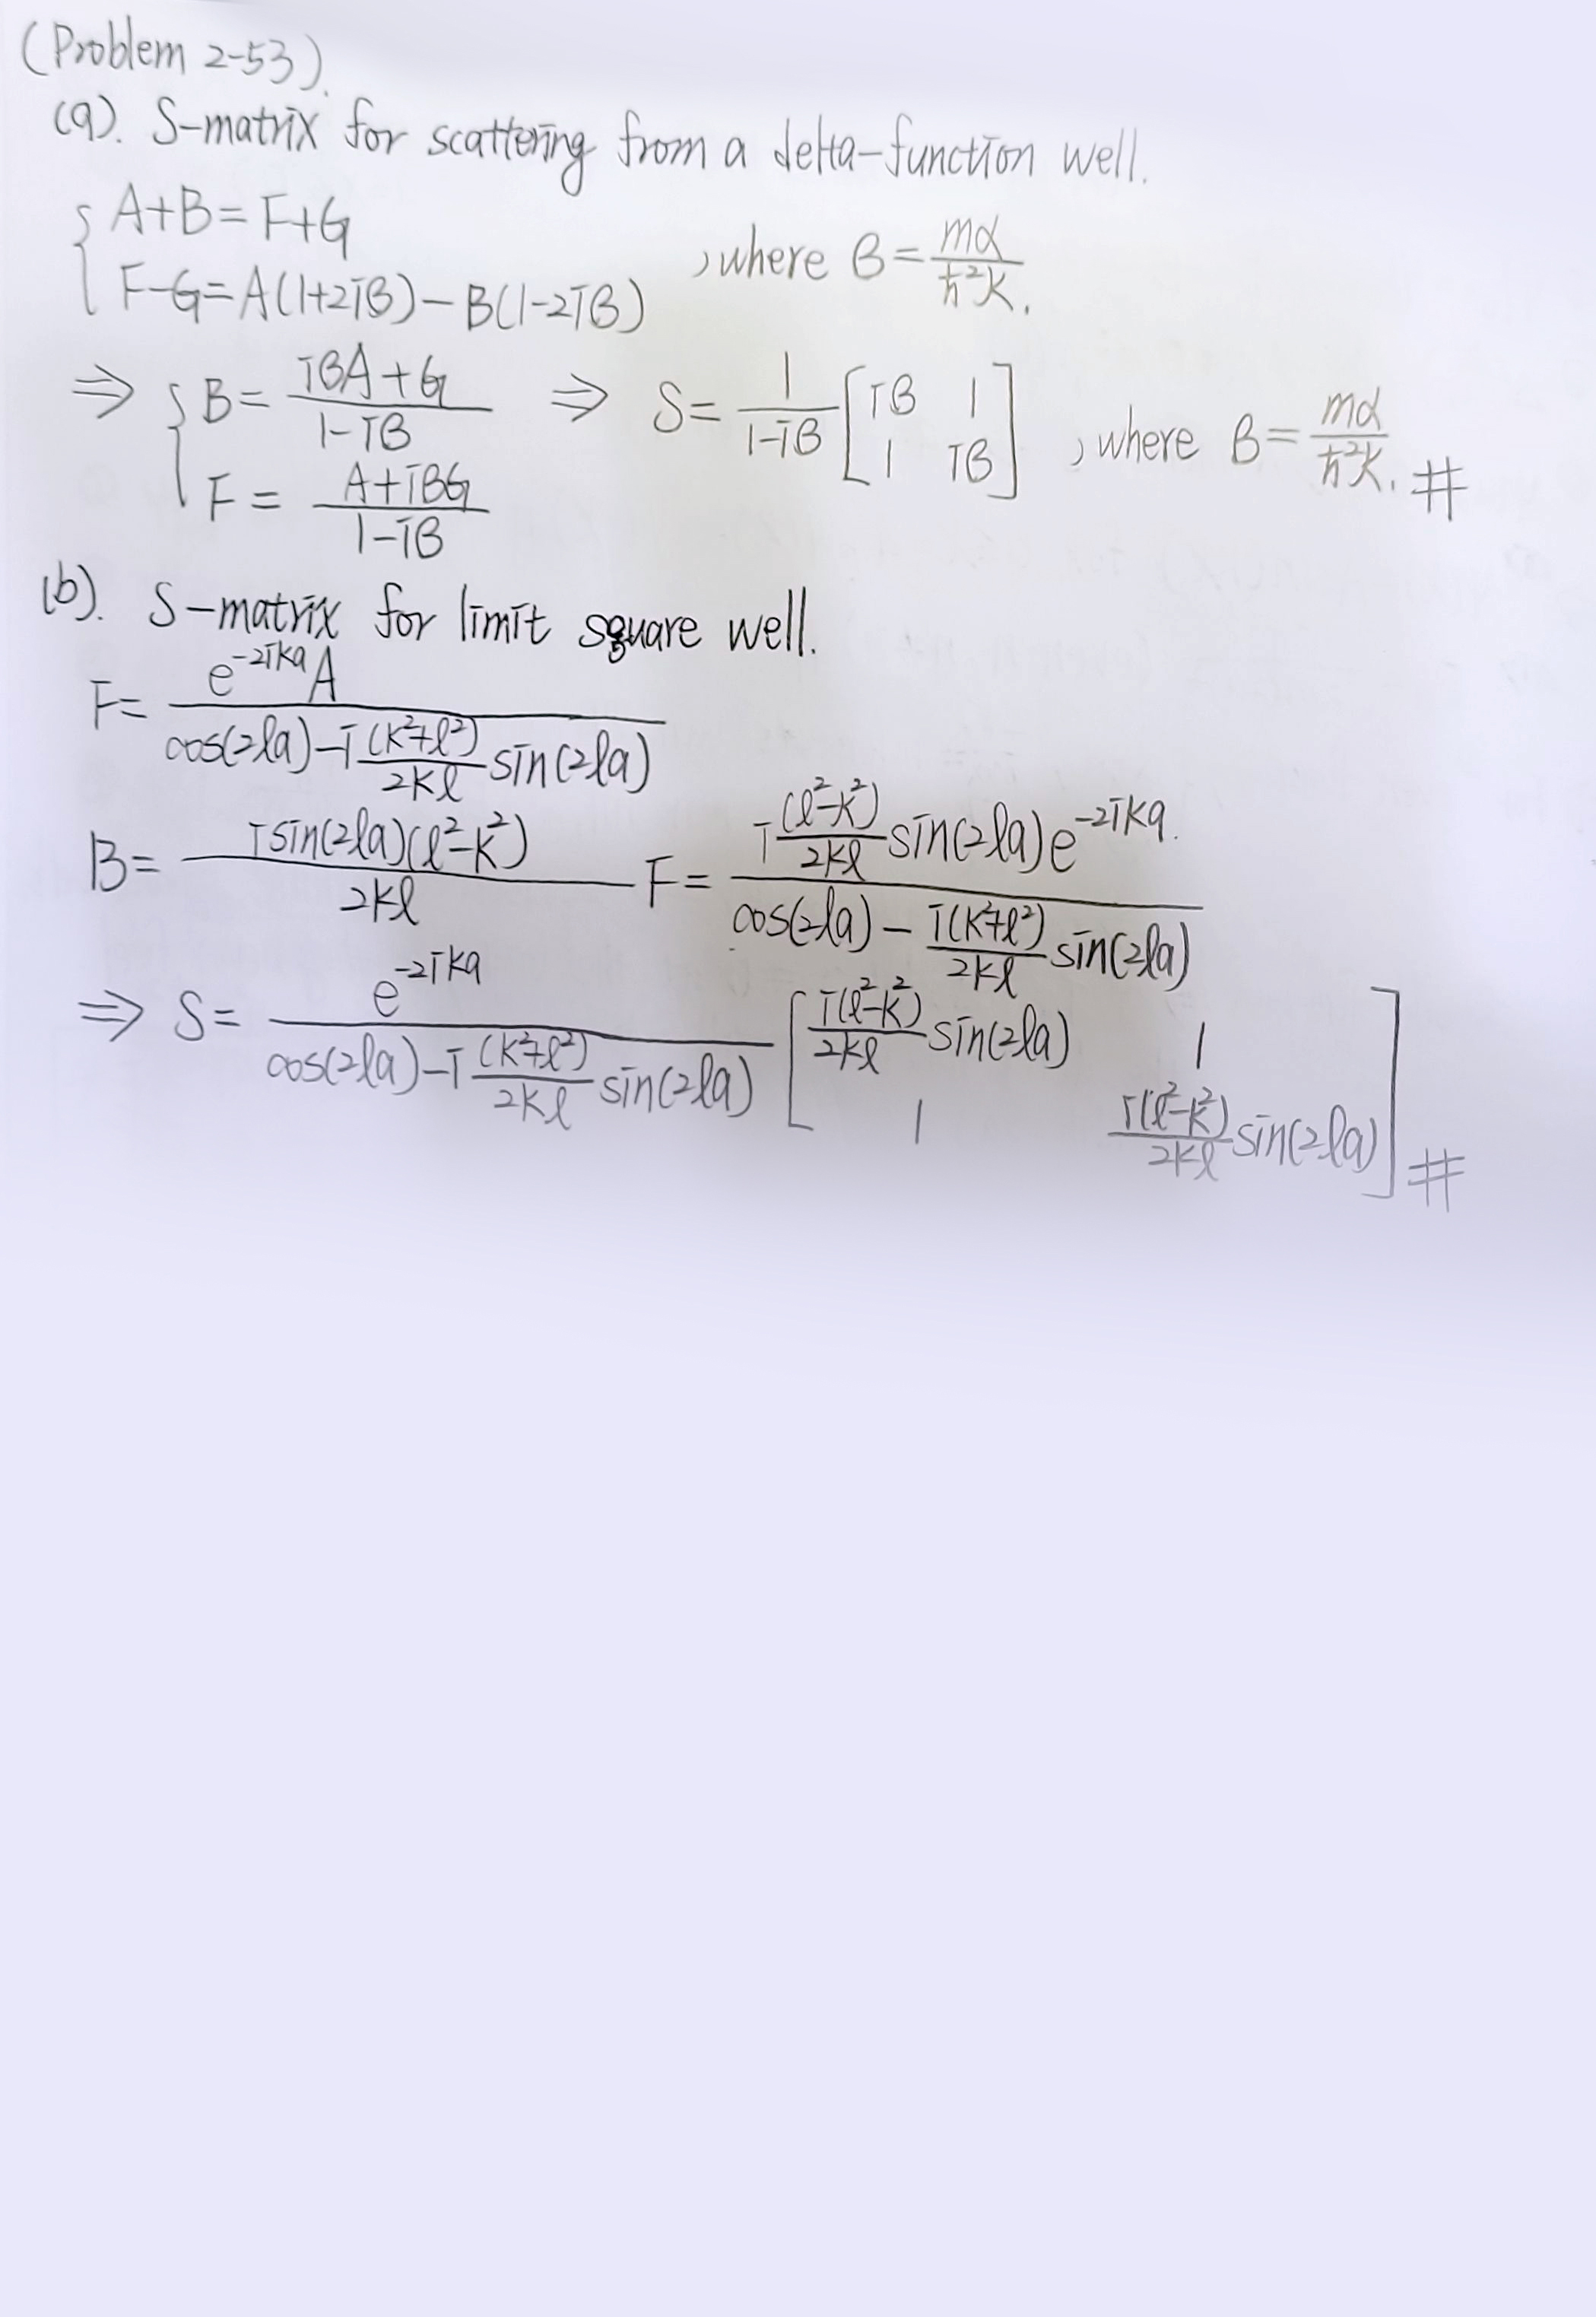 (Problem 2-53).
(a). S-matrix for scattering from a delta-function well.
{ A+B=F+G
F-G=A(1+2iβ)-B(1-2iβ) , where β=mα/ħ²k.
⇒ { B=(iβA+G)/(1-iβ) ⇒ S=1/(1-iβ) [iβ 1; 1 iβ] , where β=mα/ħ²k. #
F=(A+iβG)/(1-iβ)
(b). S-matrix for limit square well.
F=e^(-2ika)A/(cos(2la)-i(k²+l²)/2kl sin(2la))
B=i sin(2la)(l²-k²)/2kl F=i(l²-k²)/2kl sin(2la)e^(-2ika)/(cos(2la)-i(k²+l²)/2kl sin(2la))
⇒ S=e^(-2ika)/(cos(2la)-i(k²+l²)/2kl sin(2la)) [i(l²-k²)/2kl sin(2la) 1; 1 i(l²-k²)/2kl sin(2la)] #